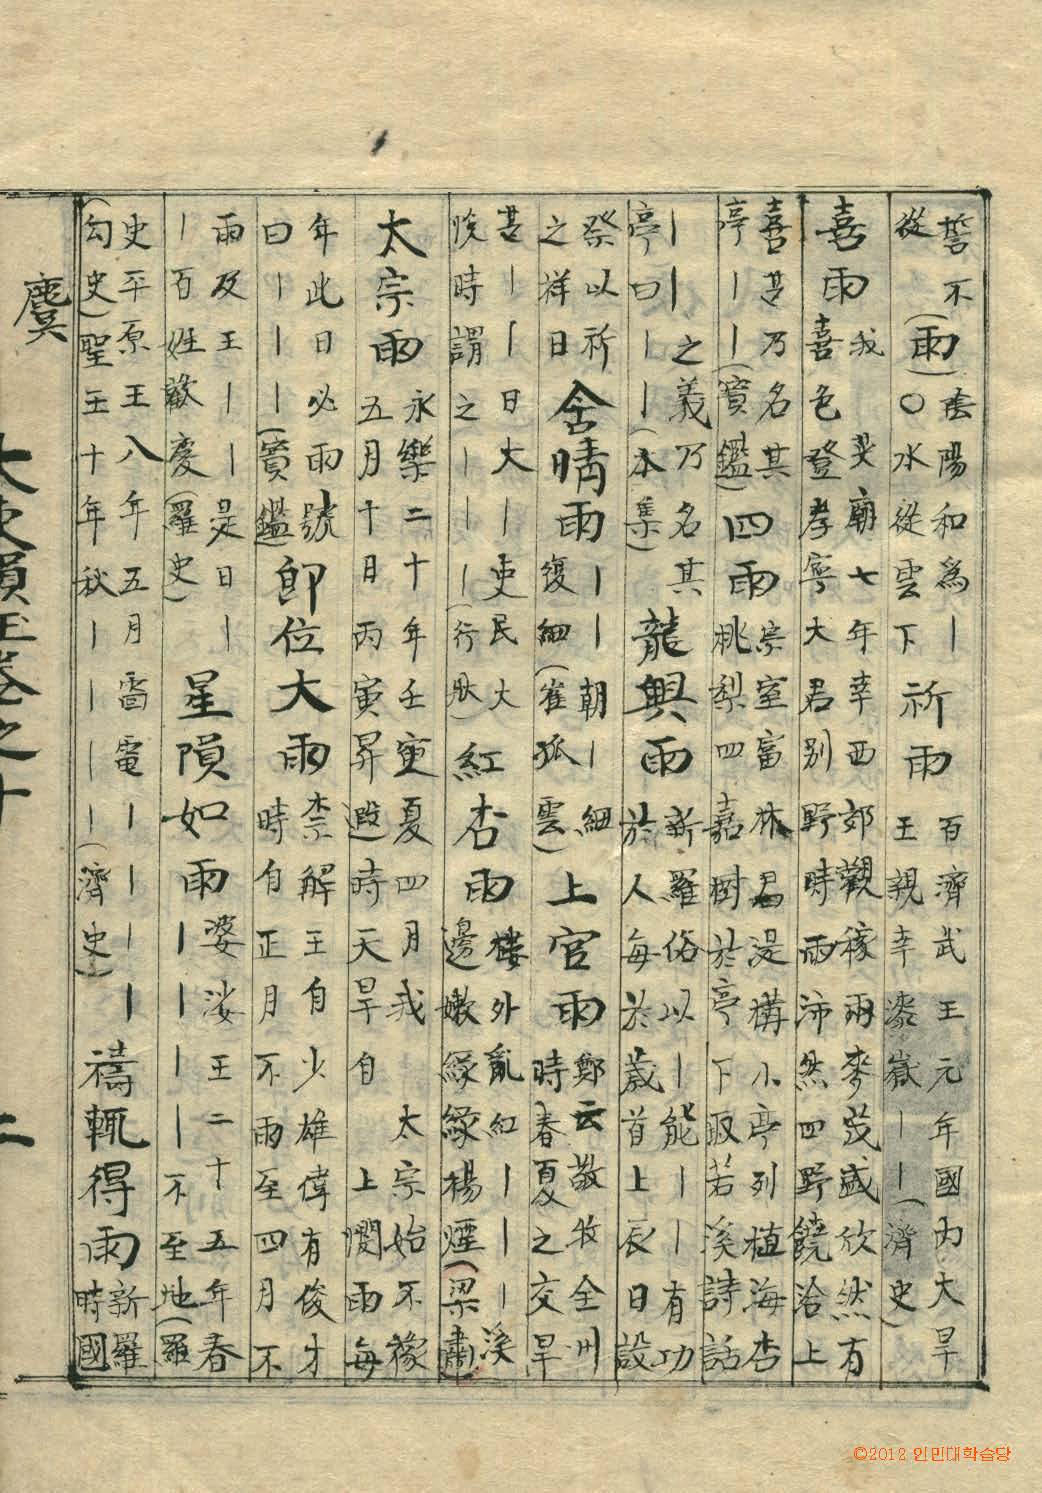 誓不
從(雨)陰陽和爲丨
○水從雲下祈雨百濟武王元年國內大旱
王親幸漆嶽丨丨(濟史)
喜雨我 英廟七年幸西郊觀稼雨麥茂盛欣然有
喜色登孝寧大君別野時雨沛然四野饒洽上
喜甚乃名其
亭丨丨(寶鑑)四雨宗室富林君湜構小亭列植海杏
桃梨四嘉樹於亭下取若溪詩話
丨丨之義乃名其
亭曰丨丨(本集)龍興雨新羅俗以丨能丨丨有功
於人每於歲首上辰日設
祭以祈
之祥日舍晴雨丨丨朝丨細
復細(崔孤雲)上官雨鄭云敬牧全州
時春夏之交旱
甚丨丨日大丨吏民大
悅時謂之丨丨丨(行狀)紅杏雨樓外亂紅丨丨丨溪
邊嫩綠綠楊煙(梁肅)
太宗雨永樂二十年壬寅夏四月我 太宗始不豫
五月十日丙寅昇遐時天旱自 上憫雨每
年此日必雨號
曰丨丨丨(寶鑑)卽位大雨柰解王自少雄偉有俊才
時自正月不雨至四月不
雨及王丨丨是日丨
丨百姓歡慶(羅史)星隕如雨婆娑王二十五年春
丨丨丨丨不至地(羅
史平原王八年五月雷電丨丨丨丨
(句史)聖王十年秋丨丨丨丨(濟史)禱輒得雨新羅
時國
麌
大東韻玉卷之十
二
©2012 인민대학습당